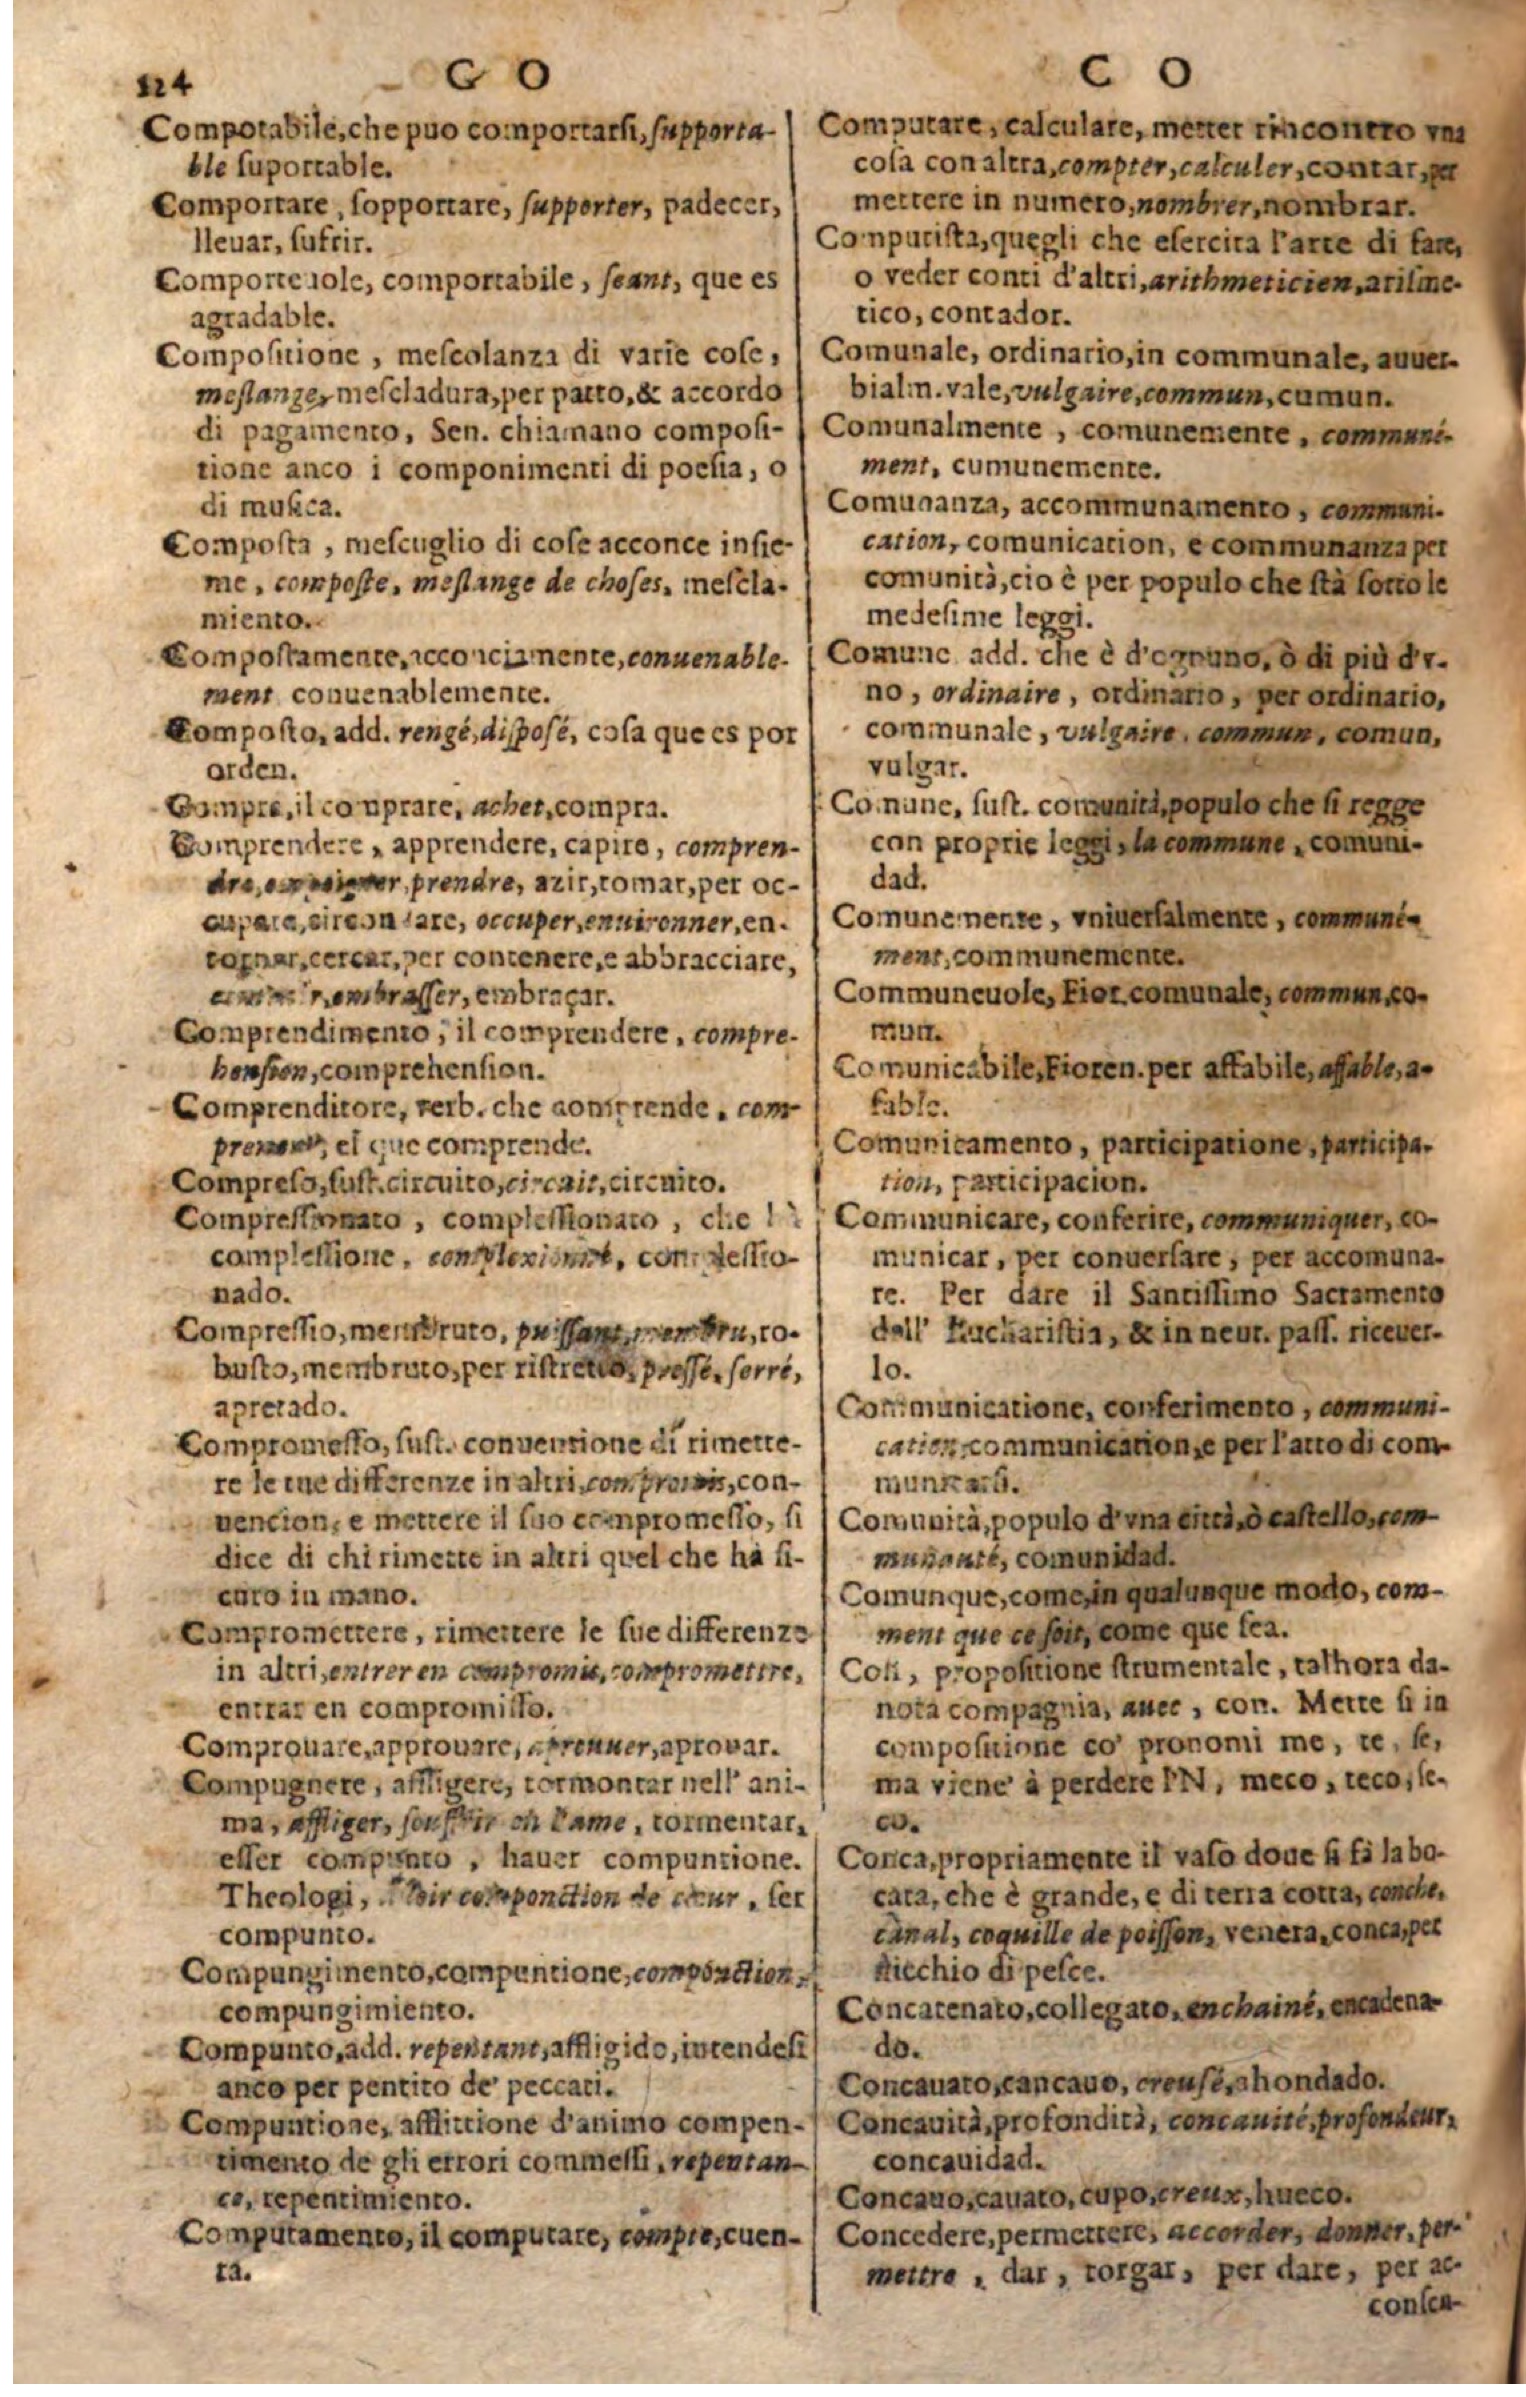 124
G O
Comporabile, che puo comportarsi, supporta-
ble suportable.
Comportare, sopportare, supporter, padecer,
lleuar, sufrir.
Comporteuole, comportabile, seant, que es
agradable.
Compositione, mescolanza di varie cose,
meslange, mescladura, per patto, & accordo
di pagamento, Sen. chiamano composi-
tione anco i componimenti di poesia, o
di musica.
Composta, mescuglio di cose acconce insie-
me, composte, meslange de choses, mescla-
miento.
Compostamente, acconciamente, conuenable-
ment conuenablemente.
Composto, add. rengé, disposé, cosa que es por
orden.
Compra, il comprare, achet, compra.
Comprendere, apprendere, capire, compren-
dre, prendre, azir, tomar, per oc-
cupare, circondare, occuper, enuironner, en-
tornar, cercar, per contenere, e abbracciare,
embrasser, embraçar.
Comprendimento, il comprendere, compre-
hension, comprehension.
Comprenditore, verb. che comprende, com-
prenant, el que comprende.
Compreso, sust. circuito, circuit, circuito.
Compressionato, complessionato, che
complessione, complexionné, complessio-
nado.
Compressio, membruto, puissant, membru, ro-
busto, membruto, per ristretto, pressé, serré,
apretado.
Compromesso, sust. conuentione di rimette-
re le tue differenze in altri, compromis, con-
uencion, e mettere il suo compromesso, si
dice di chi rimette in altri quel che ha si-
curo in mano.
Compromettere, rimettere le sue differenze
in altri, entrer en compromis, compromettre,
entrar en compromisso.
Comprouare, approuare, aprouuer, aprouar.
Compugnere, affligere, tormontar nell' ani-
ma, affliger, souffrir en l'ame, tormentar,
esser compunto, hauer compuntione.
Theologi, componction de cœur, ser
compunto.
Compungimento, compuntione, componction,
compungimiento.
Compunto, add. repentant, affligido, intendesi
anco per pentito de' peccati.
Compuntione, afflittione d'animo compen-
timento de gli errori commessi, repentan-
ce, repentimiento.
Computamento, il computare, compte, cuen-
ta.
C O
Computare, calculare, metter rincontro vna
cosa con altra, compter, calculer, contar, per
mettere in numero, nombrer, nombrar.
Computista, quegli che esercita l'arte di fare,
o veder conti d'altri, arithmeticien, arisme-
tico, contador.
Comunale, ordinario, in communale, auuer-
bialm. vale, vulgaire, commun, cumun.
Comunalmente, comunemente, communé-
ment, cumunemente.
Comunanza, accommunamento, communi-
cation, comunication, e communanza per
comunità, cio è per populo che stà sotto le
medesime leggi.
Comune add. che è d'ognuno, ò di più d'v-
no, ordinaire, ordinario, per ordinario,
communale, vulgaire, commun, comun,
vulgar.
Comune, sust. comunità, populo che si regge
con proprie leggi, la commune, comuni-
dad.
Comunemente, vniuersalmente, communé-
ment, communemente.
Communeuole, Fior. comunale, commun, co-
mun.
Comunicabile, Fioren. per affabile, affable, a-
fable.
Comunicamento, participatione, participa-
tion, participacion.
Communicare, conferire, communiquer, co-
municar, per conuersare, per accomuna-
re. Per dare il Santissimo Sacramento
dell' Eucharistia, & in neur. pass. riceuer-
lo.
Communicatione, conferimento, communi-
cation, communication, e per l'atto di com-
municarsi.
Comunità, populo d'vna città, ò castello, com-
munauté, comunidad.
Comunque, come, in qualunque modo, com-
ment que ce soit, come que sea.
Con, propositione strumentale, talhora da-
nota compagnia, auec, con. Mette si in
compositione co' pronomi me, te, se,
ma viene à perdere l'N, meco, teco, se-
co.
Conca, propriamente il vaso doue si fà la bo-
cata, che è grande, e di terra cotta, conche,
canal, coquille de poisson, venera, conca, per
nicchio di pesce.
Concatenato, collegato, enchainé, encadena-
do.
Concauato, cancauo, creusé, ahondado.
Concauità, profondità, concauité, profondeur,
concauidad.
Concauo, cauato, cupo, creux, hueco.
Concedere, permettere, accorder, donner, per-
mettre, dar, torgar, per dare, per ac-
consen-